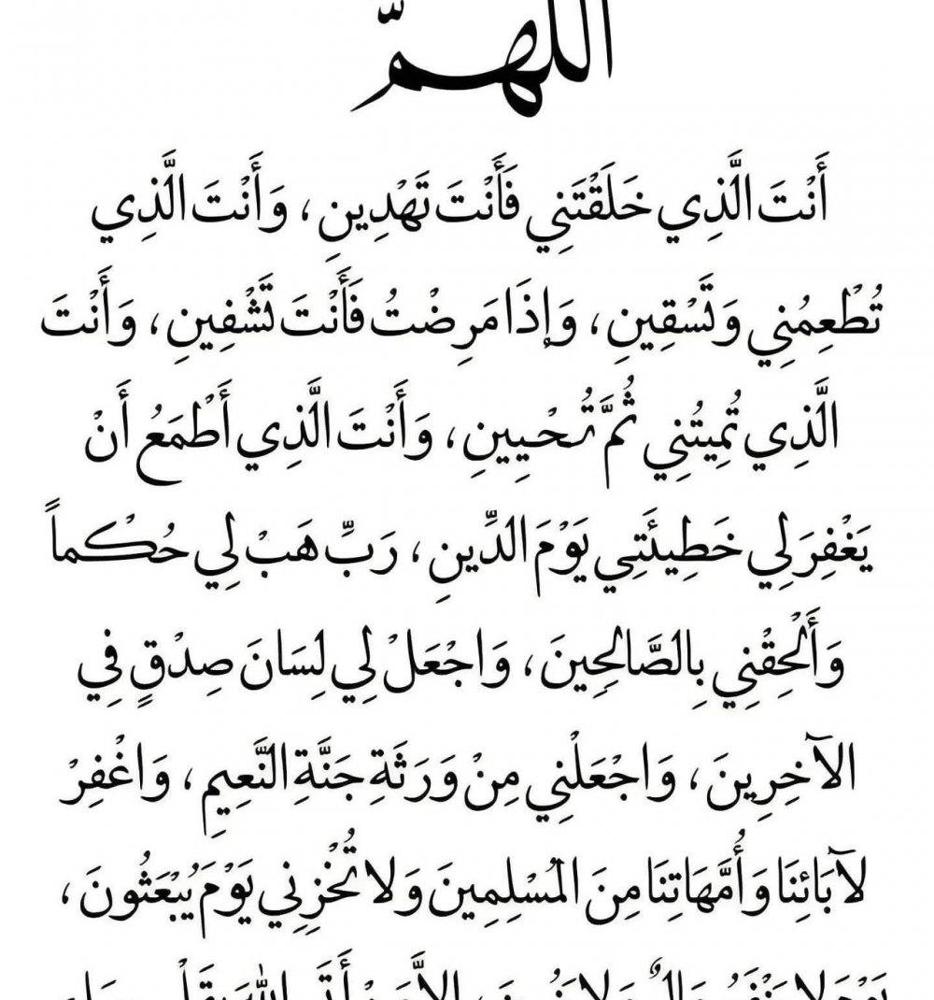 اللَّهُمَّ
أَنْتَ الَّذِي خَلَقْتَنِي فَأَنْتَ تَهْدِينِ ، وَأَنْتَ الَّذِي
تُطْعِمُنِي وَتَسْقِينِ ، وَإِذَا مَرِضْتُ فَأَنْتَ تَشْفِينِ ، وَأَنْتَ
الَّذِي تُمِيتُنِي ثُمَّ تُحْيِينِ ، وَأَنْتَ الَّذِي أَطْمَعُ أَنْ
يَغْفِرَ لِي خَطِيئَتِي يَوْمَ الدِّينِ ، رَبِّ هَبْ لِي حُكْماً
وَأَلْحِقْنِي بِالصَّالِحِينَ ، وَاجْعَلْ لِي لِسَانَ صِدْقٍ فِي
الآخِرِينَ ، وَاجْعَلْنِي مِنْ وَرَثَةِ جَنَّةِ النَّعِيمِ ، وَاغْفِرْ
لآبَائِنَا وَأُمَّهَاتِنَا مِنَ الْمُسْلِمِينَ وَلا تُخْزِنِي يَوْمَ يُبْعَثُونَ ،